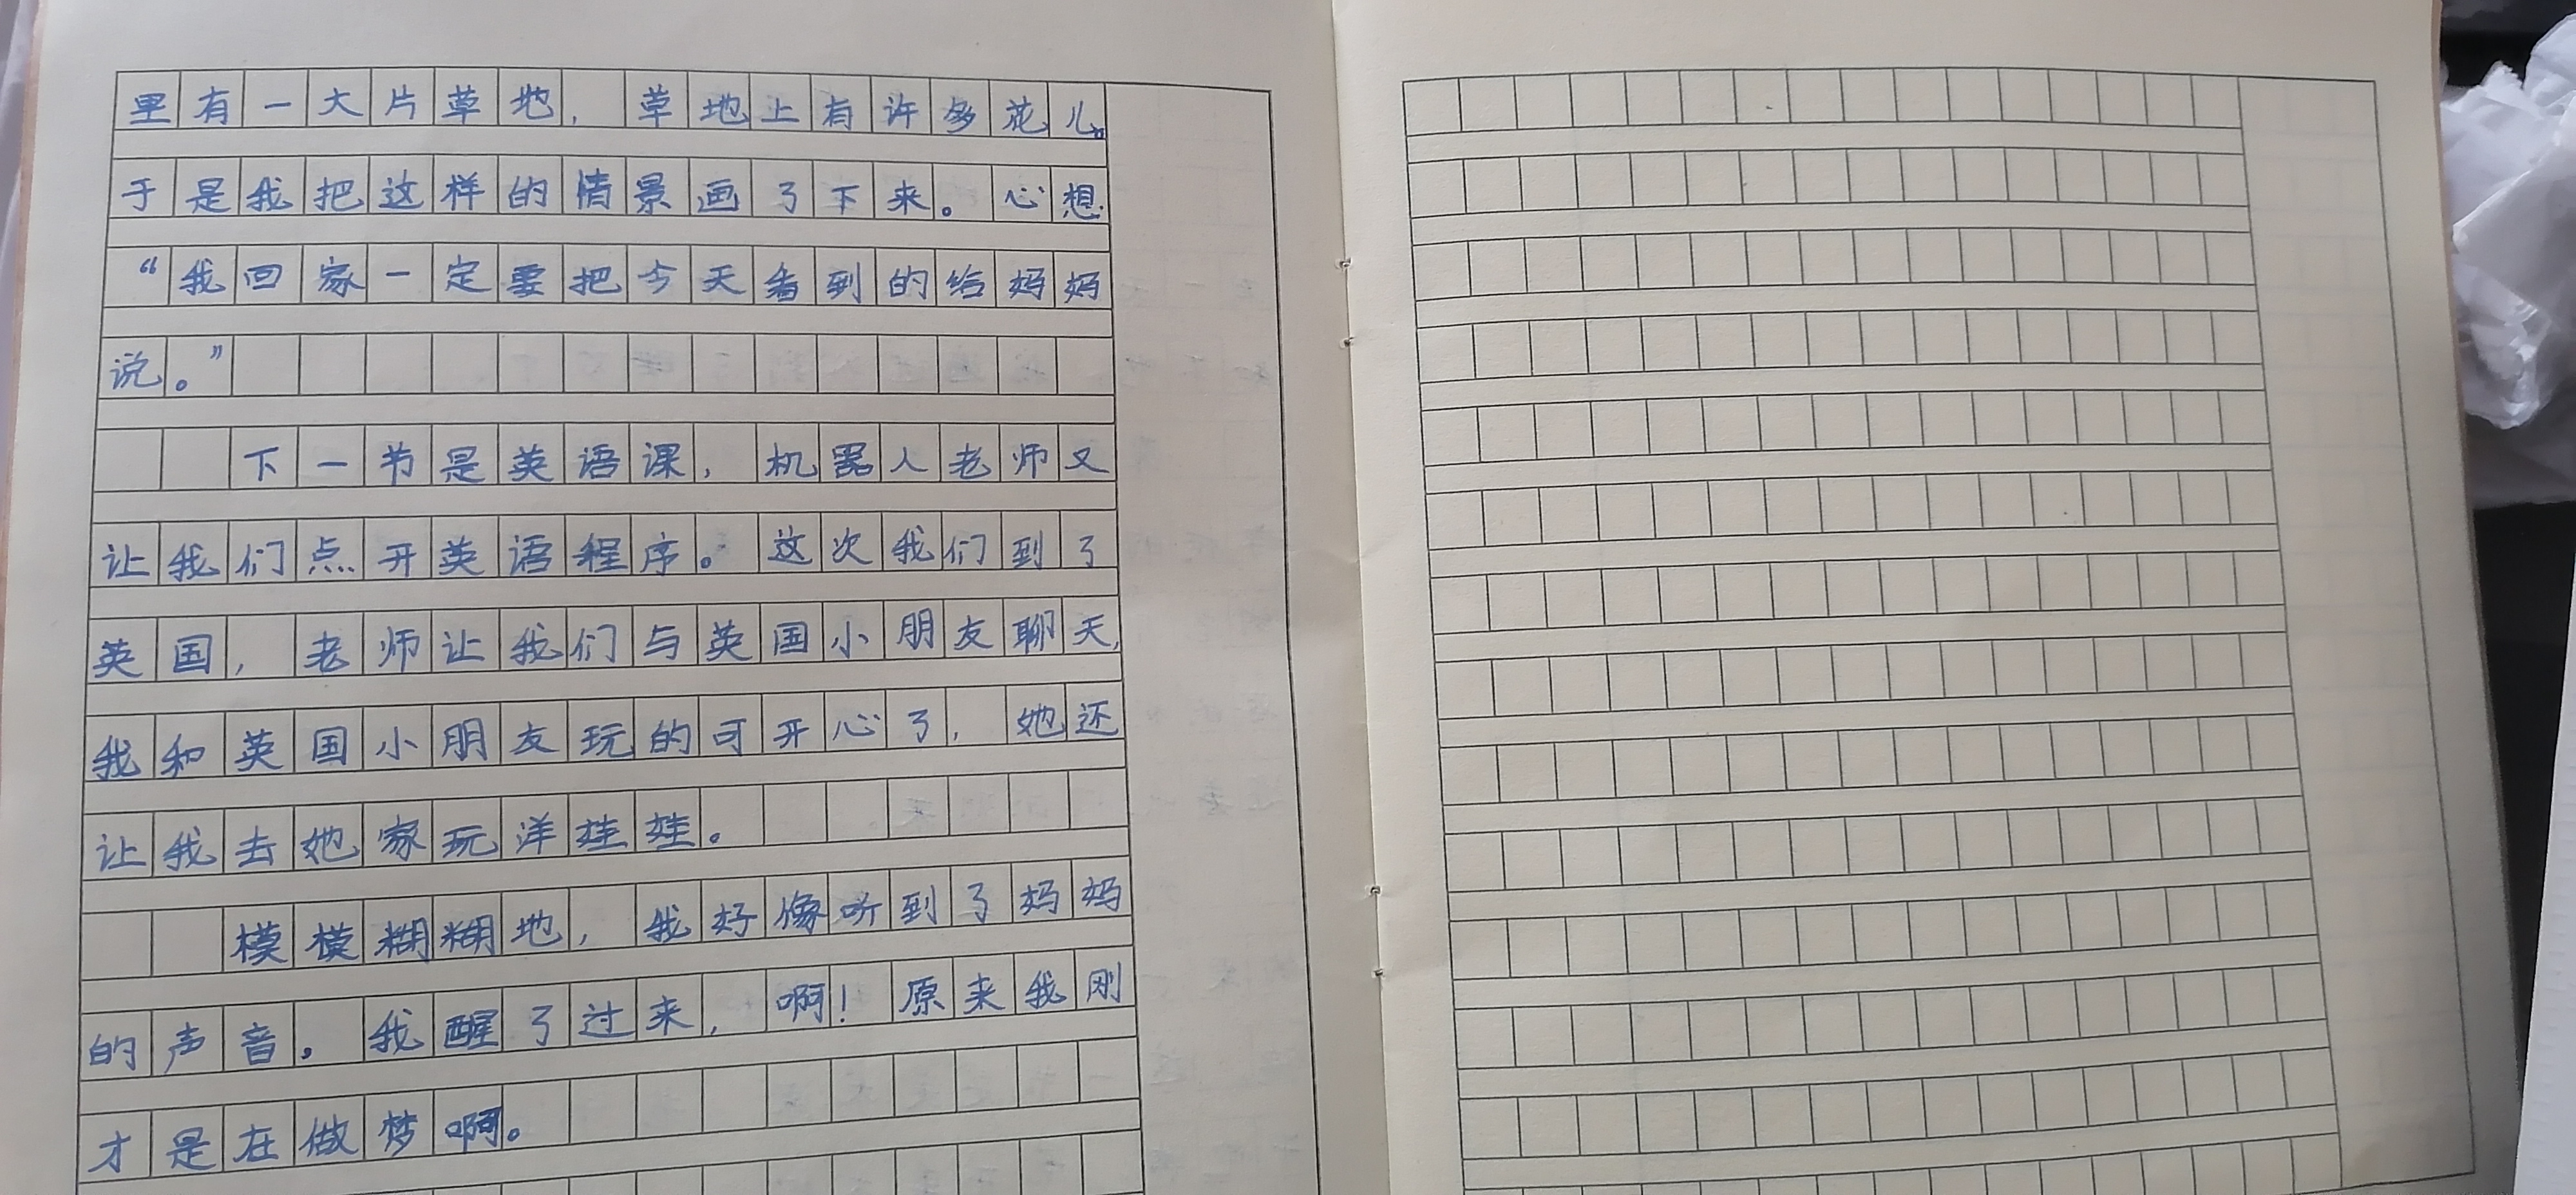 里有一大片草地，草地上有许多花儿。
于是我把这样的情景画了下来。心想
“我回家一定要把今天看到的给妈妈
说。”
下一节是英语课，机器人老师又
让我们点开英语程序。这次我们到了
英国，老师让我们与英国小朋友聊天，
我和英国小朋友玩的可开心了，她还
让我去她家玩洋娃娃。
模模糊糊地，我好像听到了妈妈
的声音。我醒了过来，啊！原来我刚
才是在做梦啊。